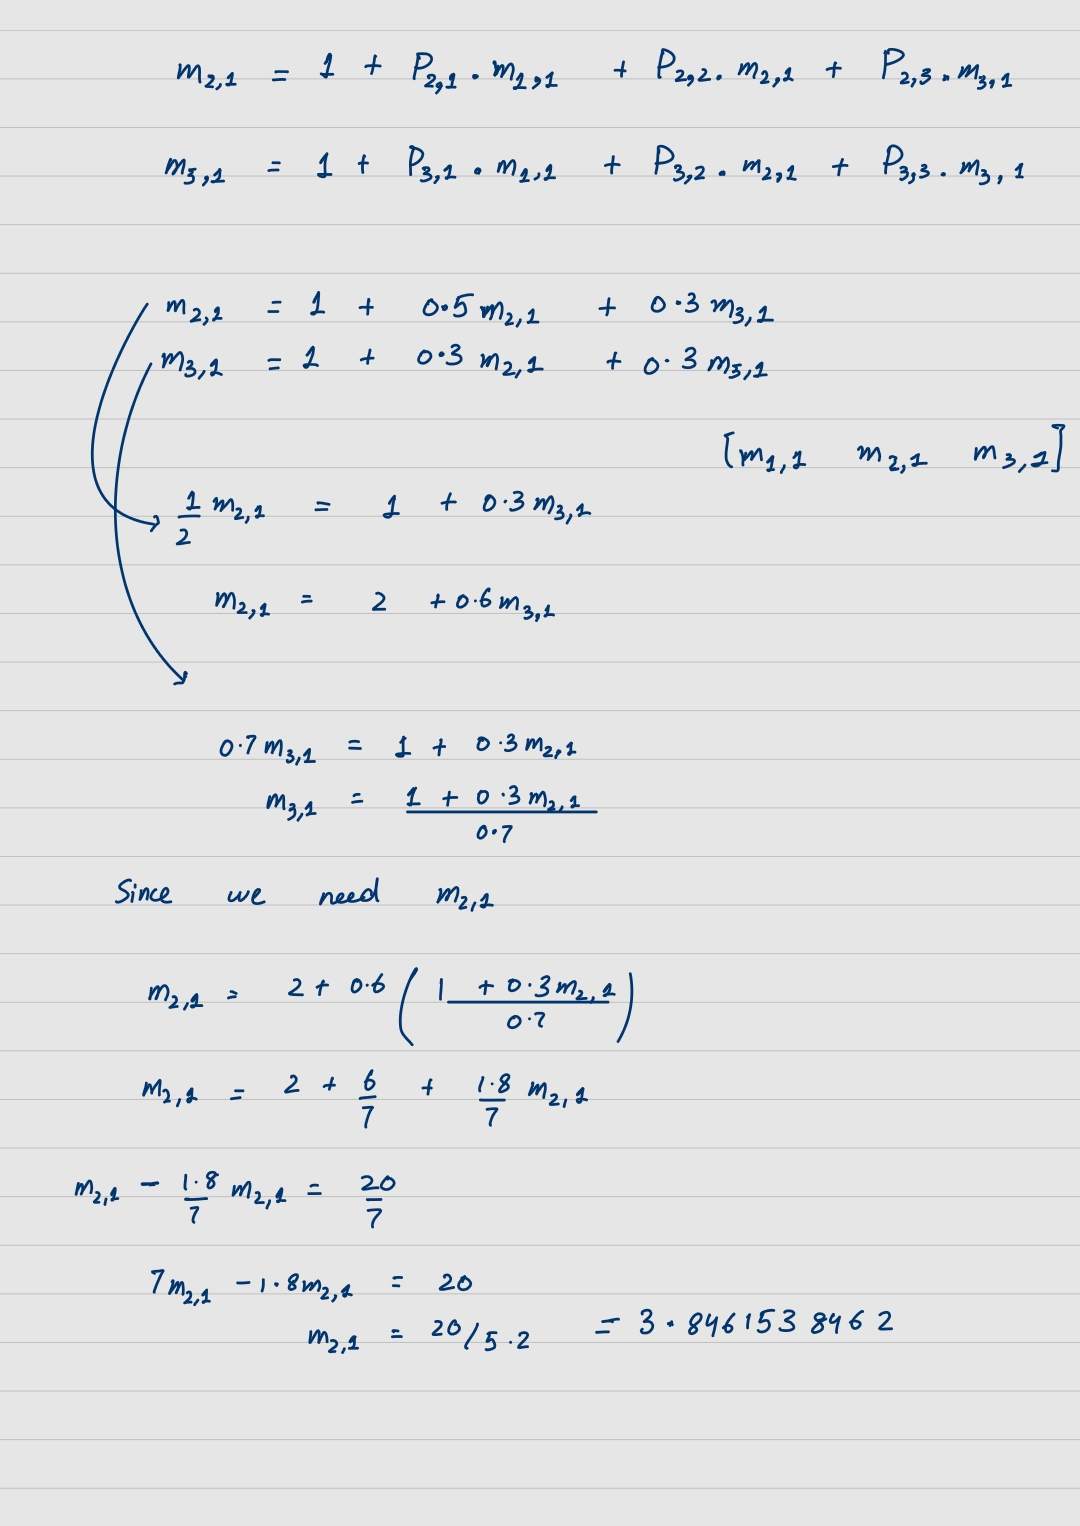 m₂,₁ = 1 + P₂,₁ . m₁,₁ + P₂,₂ . m₂,₁ + P₂,₃ . m₃,₁
m₃,₁ = 1 + P₃,₁ . m₁,₁ + P₃,₂ . m₂,₁ + P₃,₃ . m₃,₁
m₂,₁ = 1 + 0.5 m₂,₁ + 0.3 m₃,₁
m₃,₁ = 1 + 0.3 m₂,₁ + 0.3 m₃,₁
[m₁,₁ m₂,₁ m₃,₁]
1/2 m₂,₁ = 1 + 0.3 m₃,₁
m₂,₁ = 2 + 0.6 m₃,₁
0.7 m₃,₁ = 1 + 0.3 m₂,₁
m₃,₁ = (1 + 0.3 m₂,₁)/0.7
Since we need m₂,₁
m₂,₁ = 2 + 0.6 ((1 + 0.3 m₂,₁)/0.7)
m₂,₁ = 2 + 6/7 + 1.8/7 m₂,₁
m₂,₁ - 1.8/7 m₂,₁ = 20/7
7 m₂,₁ - 1.8 m₂,₁ = 20
m₂,₁ = 20/5.2 = 3.8461538462